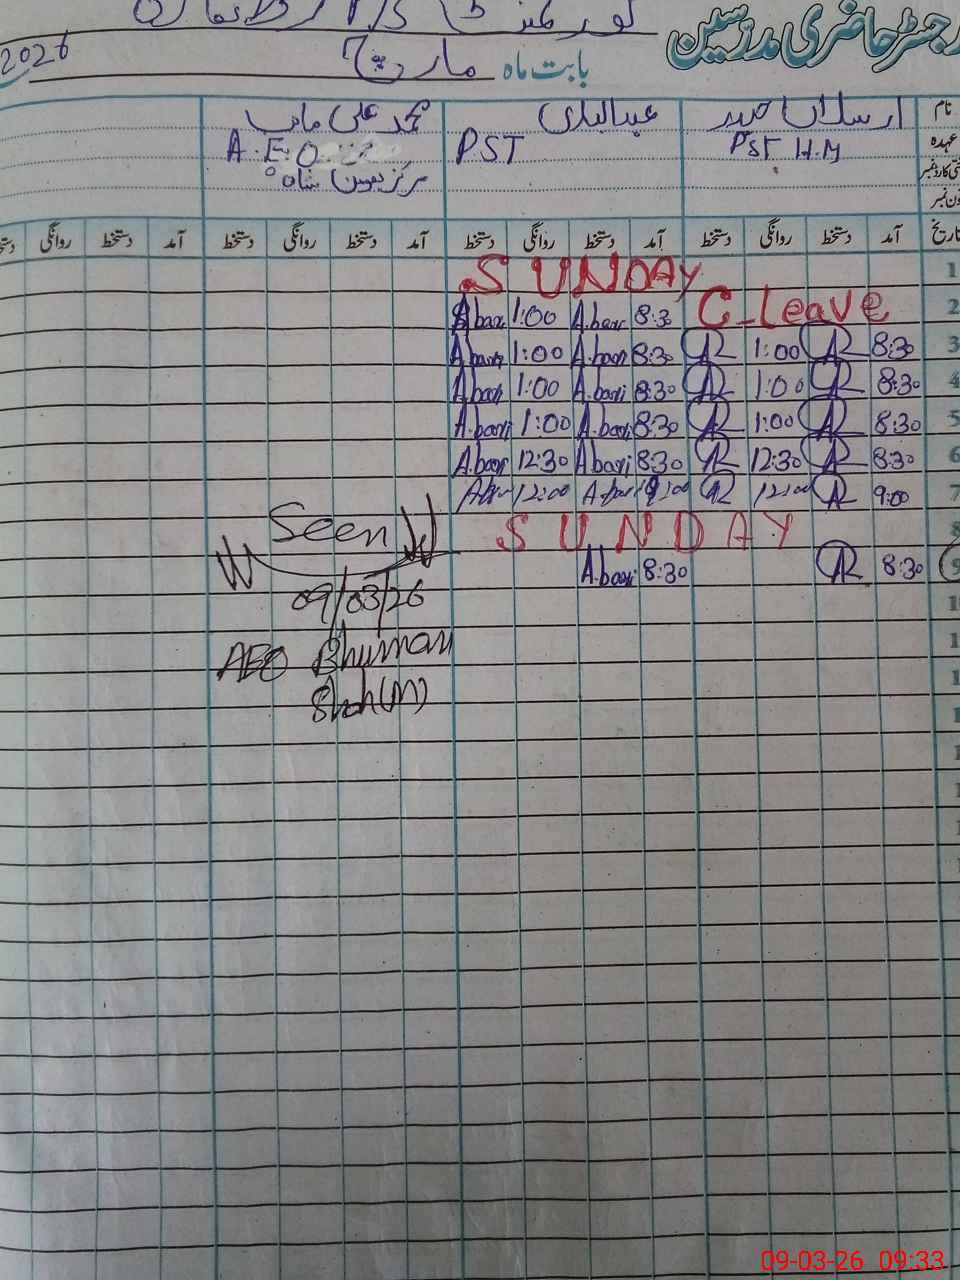 رجسٹر حاضری مدرسین
بابت ماہ مارچ 2026
نام ارسلان حیدر عبدالباری محمد علی
عہدہ PST H.M PST A.E.O
مرکز بھومن شاہ
تاریخ آمد دستخط روانگی دستخط آمد دستخط روانگی دستخط آمد دستخط روانگی دستخط آمد دستخط روانگی
1 SUNDAY
2 C_Leave 8:30 A.bari 1:00 A.bari
3 8:30 AR 1:00 AR 8:30 A.bari 1:00 A.bari
4 8:30 AR 1:00 AR 8:30 A.bari 1:00 A.bari
5 8:30 AR 1:00 AR 8:30 A.bari 1:00 A.bari
6 8:30 AR 12:30 AR 8:30 A.bari 12:30 A.bari
7 9:00 AR 12:00 AR 9:00 A.bari 12:00 A.bari
8 SUNDAY
9 8:30 AR 8:30 A.bari
Seen
09/03/26
AEO Bhuman
Shah(M)
09-03-26 09:33